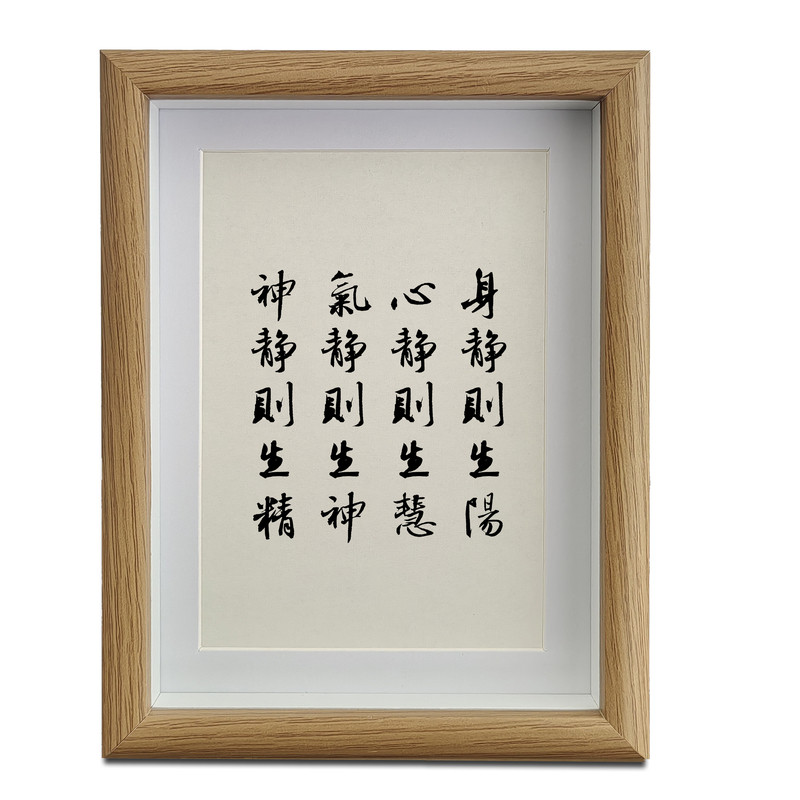 身静則生陽
心静則生慧
氣静則生神
神静則生精